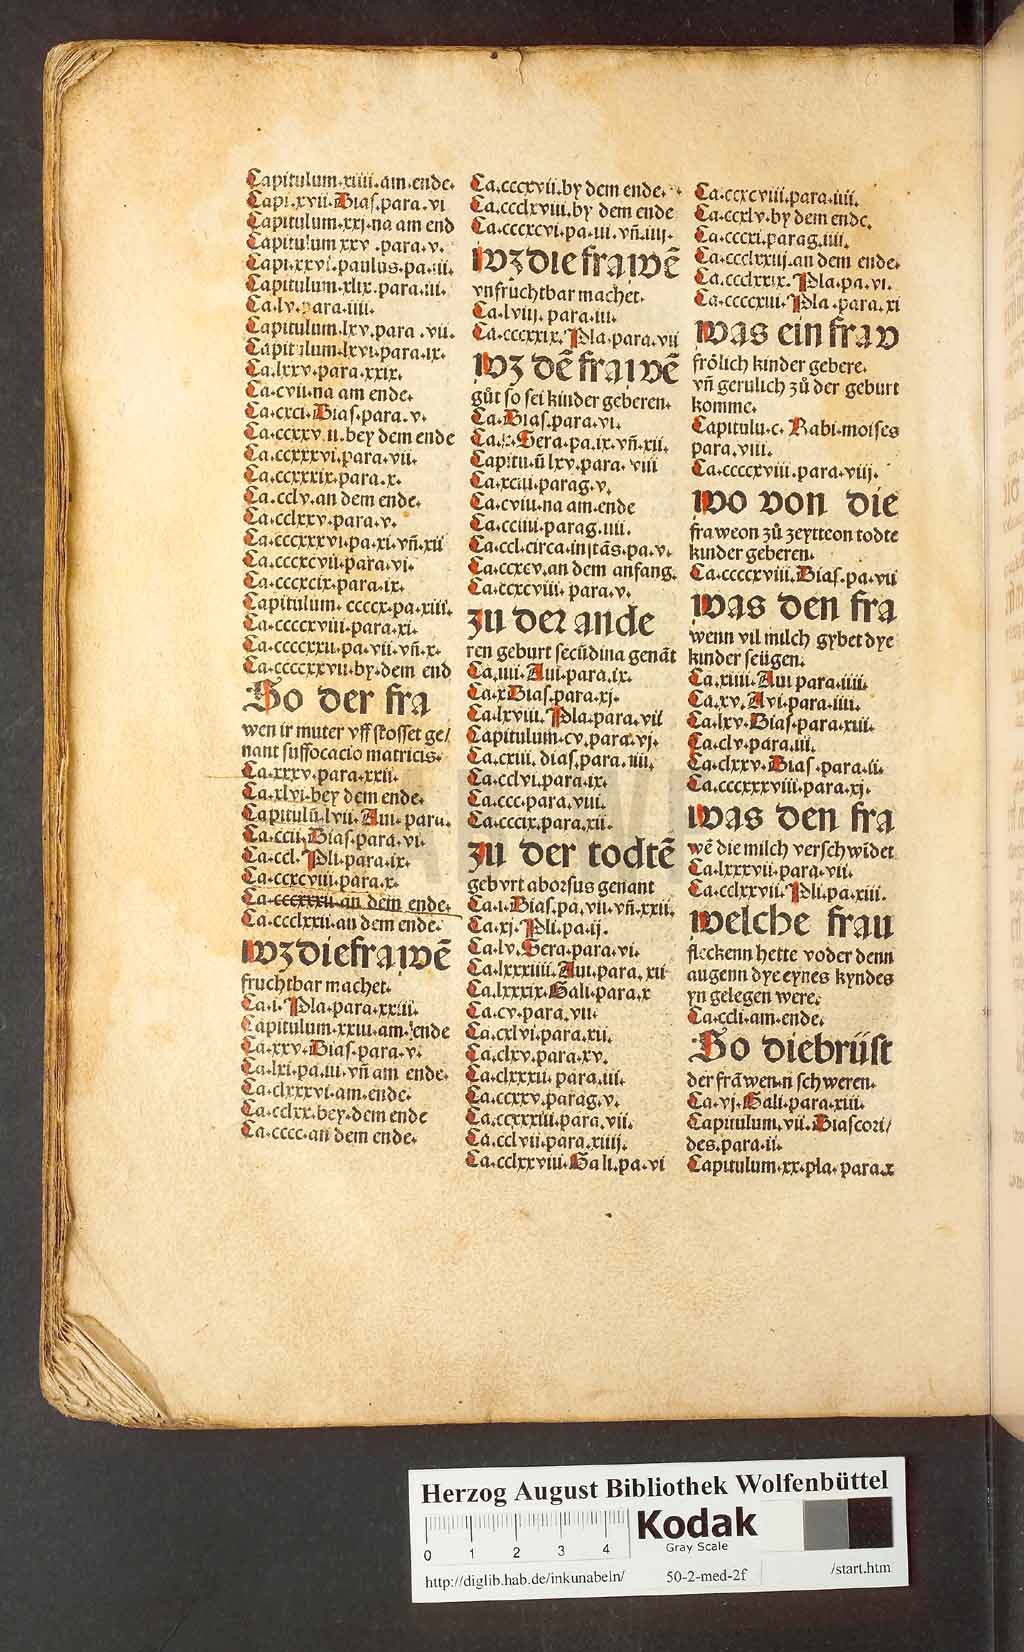 Capitulum.xiiii.am.ende.
Capi.xvii.Dias.para.vi
Capitulum.xxj.na am end
Capitulum xxv.para.v.
Capi.xxvi.paulus.pa.iii.
Capitulum.xlix.para.iii.
Ca.lv.para.iiii.
Capitulum.lxv.para.vii.
Capitulum.lxvi.para.ix.
Ca.lxxv.para.xxix.
Ca.cvii.na am ende.
Ca.cxci.Dias.para.v.
Ca.ccxxv.ii.bey dem ende
Ca.ccxxxvi.para.vii.
Ca.ccxxxix.para.x.
Ca.cclv.an dem ende.
Ca.cclxxv.para.v.
Ca.cccxxxvi.pa.xi.vñ.xii
Ca.cccxcvii.para.vi.
Ca.cccxcix.para.ix.
Capitulum.ccccx.pa.xiii.
Ca.ccccxviii.para.xi.
Ca.ccccxxii.pa.vii.vñ.x.
Ca.ccccxxvii.by.dem end
So der fra
wen ir muter vff stosset ge/
nant suffocacio matricis.
Ca.xxxv.para.xxii.
Ca.xlvi.bey dem ende.
Capitulū.lvii.Aui.para.
Ca.ccii.Dias.para.vi.
Ca.ccl.Pli.para.ix.
Ca.ccxcviii.para.x.
Ca.cccxxxii.an dem ende.
Ca.ccclxxii.an dem ende.
wz die frawē
fruchtbar machet.
Ca.i.Pla.para.xxiii.
Capitulum.xxiii.am.ende
Ca.xxv.Dias.para.v.
Ca.lxi.pa.iii.vñ am ende.
Ca.clxxxvi.am.ende.
Ca.cclxx.bey.dem ende
Ca.cccc.an dem ende.
Ca.cccxvii.by dem ende.
Ca.ccclxviii.by dem ende
Ca.cccxcvi.pa.iii.vñ.iiij.
wz die frawē
vnfrůchtbar machet.
Ca.lviij.para.iii.
Ca.cccxxix.Pla.para.vii
wz dē frawē
gůt so sei kinder geberen.
Ca.Dias.para.vi.
Ca.x.Sera.pa.ix.vñ.xii.
Capitu.ū lxv.para.viii
Ca.xciii.parag.v.
Ca.cviii.na am.ende
Ca.cciiii.parag.iiii.
Ca.ccl.circa.instās.pa.v.
Ca.ccxcv.an dem anfang.
Ca.ccxcviii.para.v.
zu der ande
ren geburt secūdina genāt
Ca.iiii.Aui.para.ix.
Ca.x Dias.para.xj.
Ca.lxviii.Pla.para.vii
Capitulum.cv.para.vj.
Ca.cxiii.dias.para.iiii.
Ca.cclvi.para.ix.
Ca.ccc.para.viii.
Ca.cccix.para.xii.
zu der todtē
geburt aborsus genant
Ca.i.Dias.pa.vii.vñ.xxii.
Ca.xj.Pli.pa.ij.
Ca.lv.Sera.para.vi.
Ca.lxxxiiii.Aui.para.xii
Ca.lxxxix.Gali.para.x
Ca.cv.para.vii.
Ca.cxlvi.para.xii.
Ca.clxv.para.xv.
Ca.clxxxii.para.iii.
Ca.ccxxv.parag.v.
Ca.ccxxxiii.para.vii.
Ca.cclvii.para.xiiij.
Ca.cclxxviii.Gali.pa.vi
Ca.ccxcviii.para.iiii.
Ca.ccxlv.by dem ende.
Ca.cccxi.parag.iiii.
Ca.ccclxxiij.an dem ende.
Ca.ccclxxix.Pla.pa.vi.
Ca.ccccxiii.Pla.para.xi
was ein frav
frölich kinder gebere.
vñ gerulich zů der geburt
komme.
Capitulu.c.Rabi.moises
para.viii.
Ca.ccccxviii.para.viij.
wo von die
fraweon zů zeytteon todte
kinder geberen.
Ca.ccccxviii.Dias.pa.vii
was den fra
wenn vil milch gybet dye
kinder seügen.
Ca.xiiii.Aui para.iiii.
Ca.xv.Avi.para.iiii.
Ca.lxv.Dias.para.xiii.
Ca.clv.para.iii.
Ca.clxxv.Dias.para.ii.
Ca.cccxxxviii.para.xj.
was den fra
wē die milch verschwīdet
Ca.lxxxvii.para.vii.
Ca.cclxxvii.Pli.pa.xiii.
welche frau
fleckenn hette voder denn
augenn dye eynes kyndes
yn gelegen were.
Ca.ccli.am.ende.
So die brüst
der frāwen.n schweren.
Ca.vj.Gali.para.xiii.
Capitulum.vii.Diascori/
des.para.ii.
Capitulum.xx.pla.para.x
Herzog August Bibliothek Wolfenbüttel
0 1 2 3 4
Kodak
Gray Scale
http://diglib.hab.de/inkunabeln/ 50-2-med-2f /start.htm